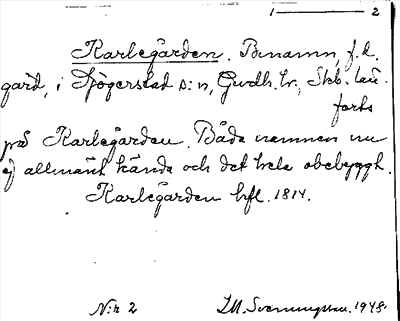 1 ——— 2
Karlegården. Binamn, f.d.
gård, i Sjögerstad s:n, Gudh. hr, Skb. län.
forts
på Karlegården. Båda namnen nu
ej allmänt kända och det hela obebyggt.
Karlegården hfl. 1814.
N:r 2 I.M. Svenningsson. 1948.